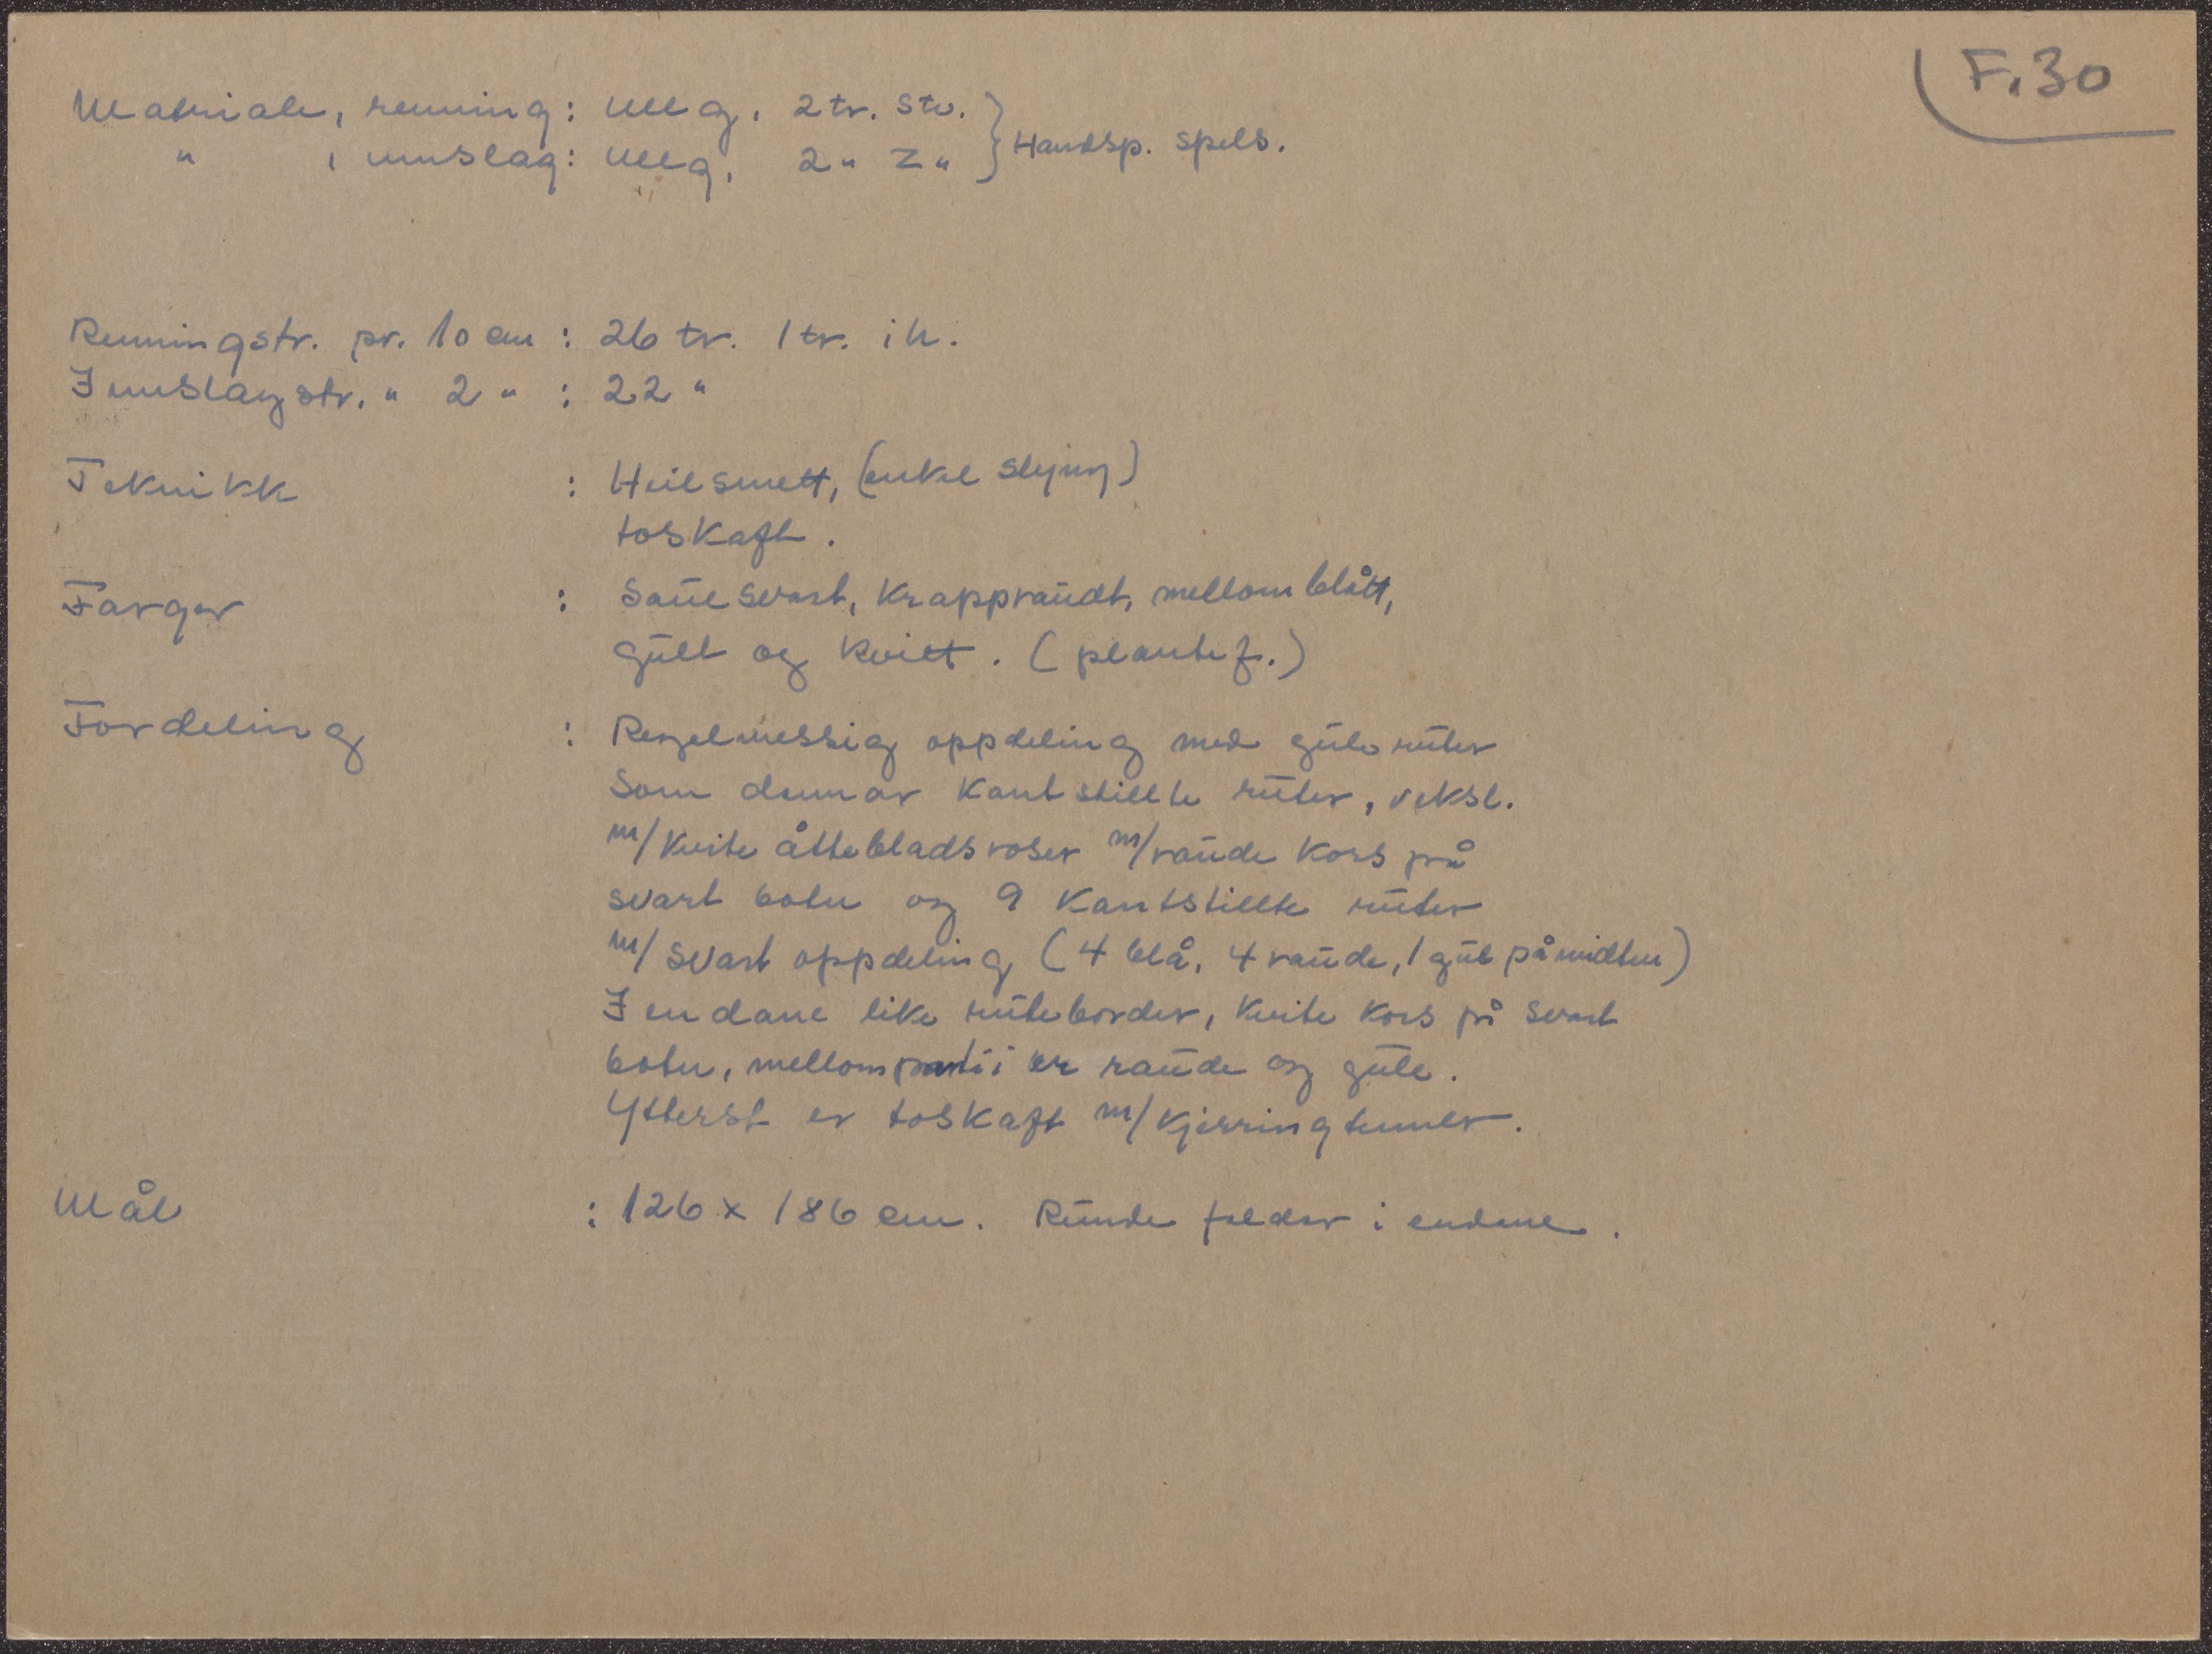 F. 30
Matriale, renning: ullg. 2 tr. stv. } Handsp. spels.
" , innslag: ullg. 2 " Z "
Renningstr. pr. 10 cm : 26 tr. 1 tr. i h.
Innslagstr. " 2 " : 22 "
Teknikk : Heilsmett, (enkel slyng)
toskaft.
Farger : Sauesvart, Krappraudt, mellomblått,
gult og kvitt. (plantef.)
Fordeling : Regelmessig oppdeling med gule ruter
Som dannar kantstillte ruter, veksl.
m/kvite åttebladsroser m/raude kors på
svart botn og 9 kantstillte ruter
m/svart oppdeling (4 blå, 4 raude, 1 gul på midten)
I endane like ruteborder, kvite kors på svart
botn, mellomparti i er raude og gule.
Ytterst er toskaft m/kjerringtenner.
Mål : 126 x 186 cm. Runde falder i endane.